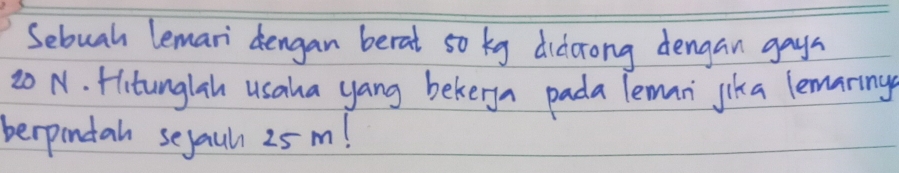 Sebuah lemari dengan berat 50 kg didorong dengan gaya
20 N. Hitunglah usaha yang bekerja pada lemari jika lemarinya
berpindah sejauh 25 m!